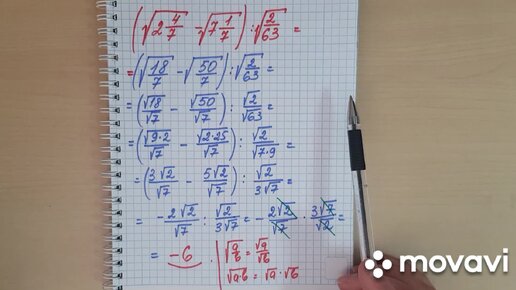 (√2 4/7 - √7 1/7) : √2/63 =
= (√18/7 - √50/7) : √2/63 =
= (√18/√7 - √50/√7) : √2/√63 =
= (√9·2/√7 - √2·25/√7) : √2/√7·9 =
= (3√2/√7 - 5√2/√7) : √2/3√7 =
= -2√2/√7 : √2/3√7 = -2√2/√7 · 3√7/√2 =
= -6. √a/b = √a/√b
√a·b = √a · √b
movavi